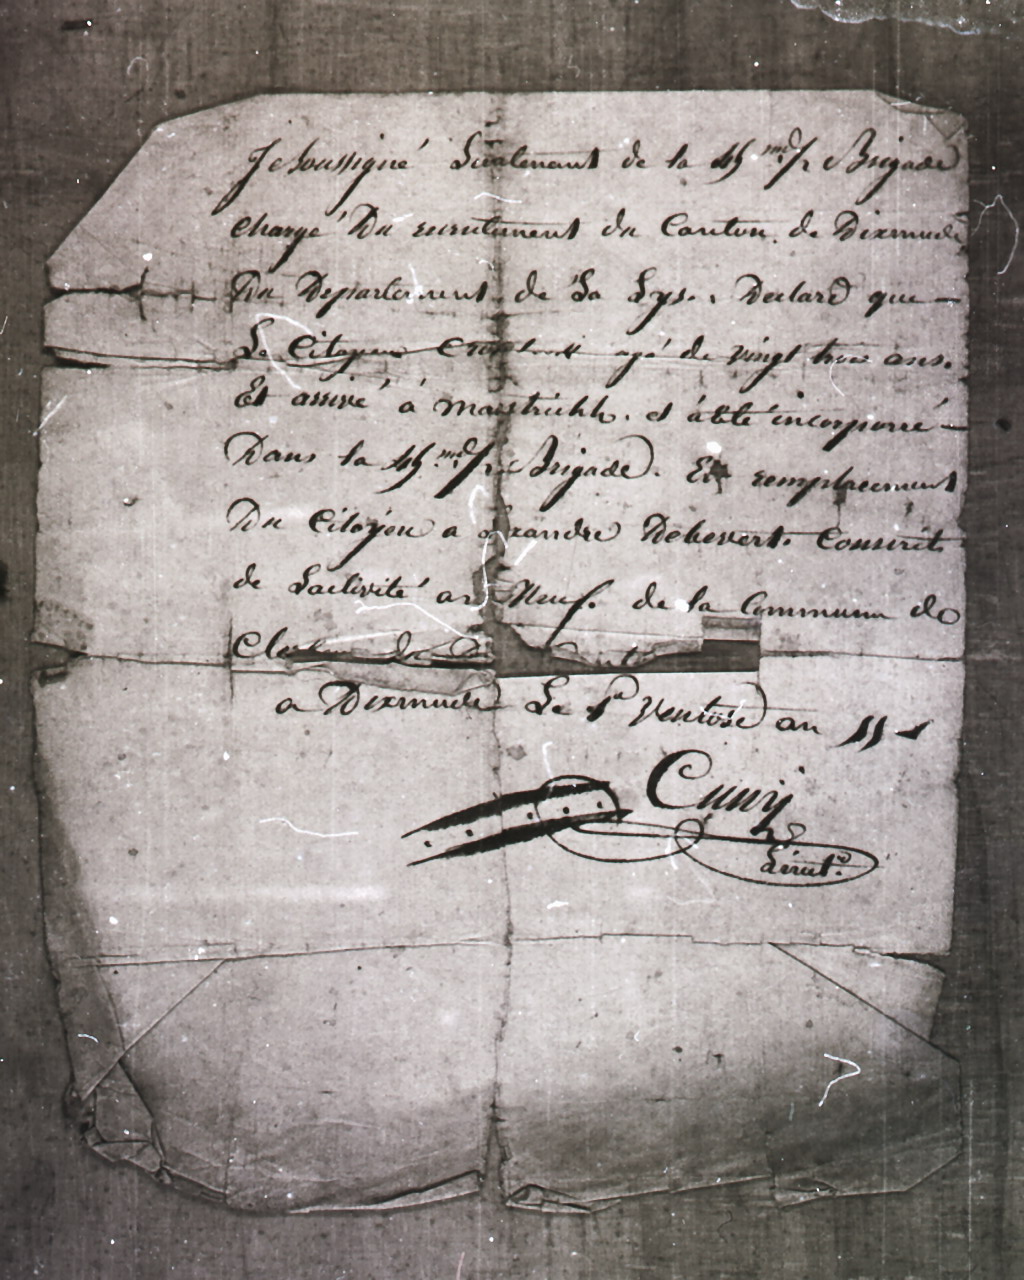 Je soussigné Lieutenant de la 45 me 1/2 Brigade
chargé Du recrutement du Canton de Dixmude
Du Departement de La Lys. Declare que
Le Citoyen agé de vingt trois ans.
Et arrivé à Mastrickh. et à été incorporré
Dans la 45 me 1/2 Brigade. En remplacement
Du Citoyen andre Debevert. Conscrit
de Lactivité an Neuf. de la Commune de

a Dixmude Le Ventose an 11
Cuny
Lieut.